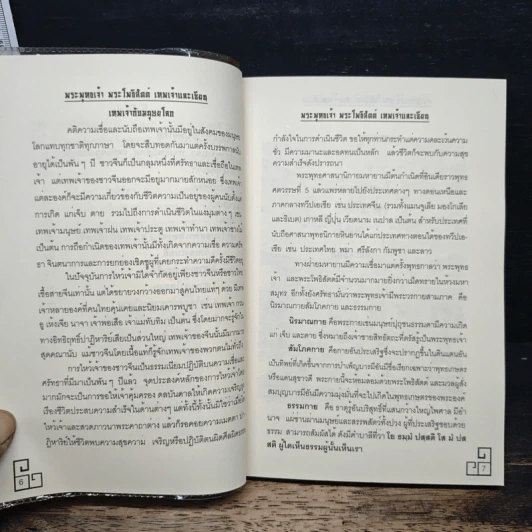 พระพุทธเจ้า พระโพธิสัตต์ เทพเจ้าและเซียน
เทพเจ้ากับมนุษยโลก
คติความเชื่อและนับถือเทพเจ้านั้นมีอยู่ในสังคมของมนุษย
โลกแทบทุกชาติทุกภาษา โดยจะสืบทอดกันมาแต่ครั้งบรรพกาลนับ
อายุได้เป็นพัน ๆ ปี ชาวจีนก็เป็นกลุ่มหนึ่งที่ศรัทธาและเชื่อถือในเทพ
เจ้า แต่เทพเจ้าของชาวจีนออกจะมีอยู่มากมายสักหน่อย ซึ่งเทพเจ้า
แต่ละองค์ก็จะมีความเกี่ยวข้องกับชีวิตความเป็นอยู่ของผู้คนนับตั้งแต่
การเกิด แก่เจ็บ ตาย รวมไปถึงการดำเนินชีวิตในแง่มุมต่าง ๆ เช่น
เทพเจ้ามนุษย์ เทพเจ้าฝน เทพเจ้าประตู เทพเจ้าทำนา เทพเจ้าเขา
เป็นต้น การถือกำเนิดของเทพเจ้านั้นมีทั้งเกิดจากความเชื่อ ความศรัท
ธา จินตนาการและการยกยองเชิดชูผู้ที่เคยกระทำความดีครั้งมีชีวิตอยู่
ในปัจจุบันการไหว้เจ้ามิใดจำกัดอยู่เพียงชาวจีนหรือชาวไทย
เชื้อสายจีนเท่านั้น แต่ได้ขยายวงกว้างออกมาสู่คนไทยแท้ๆ ด้วย มีเทพ
เจ้าหลายองค์ที่คนไทยคุ้นเคยและนิยมเคารพบูชา เช่น เทพเจ้ากวน
อู เห่งเจีย นาจา เจ้าพ่อเสือ เจ้าแม่ทับทิม เป็นต้น ซึ่งโดยมากมักเป็น
ทางอิทธิฤทธิ์ปาฏิหาริย์เสียเป็นส่วนใหญ่ เทพเจ้าของจีนนั้นมีมากมาย
สุดคณานับ แม้ชาวจีนโดยเนื้อแท้ก็รู้จักเทพเจ้าของพวกตนไม่ทั่วถึง
การไหว้เจ้าของชาวจีนเป็นธรรมเนียมปฏิบัติบนความเชื่อและ
ศรัทธาที่มีมาเป็นพัน ๆ ปีแล้ว จุดประสงค์หลักของการไหว้เจ้าโดย
มากมักจะเป็นการขอให้เจ้าคุ้มครอง ดลบันดาลให้เกิดความเจริญรุ่ง
เรืองชีวิตประสบความสำเร็จในด้านต่างๆ แต่ทั้งนี้ทั้งนั้นก็มิใช่ว่าเมื่อ
ไหว้เจ้าและสวดภาวนาพระคาถาต่างๆ แล้วก็รอคอยความเมตตา
ปาฏิหาริย์ให้ชีวิตพบความสุขความ เจริญหรือปฏิบัติตนผิดศีลผิดธรรม
6
พระพุทธเจ้า พระโพธิสัตต์ เทพเจ้าและเซียน
กำลังใจในการดำเนินชีวิต ขอให้ทุกท่านกระทำแต่ความดีละเว้นความ
ชั่ว มีความมานะและอดทนเป็นหลัก แล้วชีวิตก็จะพบกับความสุข
ความสำเร็จดังปรารถนา
พระพุทธศาสนานิกายมหายานมีต้นกำเนิดที่อินเดียราวพุทธ
ศตวรรษที่ 5 แล้วแพร่หลายไปยังประเทศต่างๆ ทางตอนเหนือและ
ภาคกลางทวีปเอเซีย เช่น ประเทศจีน (รวมทั้งแมนจูเลีย มองโกเลีย
และธิเบต) เกาหลี ญี่ปุ่น เวียดนาม เนปาล เป็นต้น สำหรับประเทศที่
นับถือศาสนาพุทธนิกายหินยานได้แก่ประเทศทางตอนใต้ของทวีปเอ
เซีย เช่น ประเทศไทย พม่า ศรีลังกา กัมพูชา และลาว
ทางฝ่ายมหายานมีความเชื่อมาแต่ครั้งพุทธกาลว่า พระพุทธ
เจ้า และพระโพธิสัตต์มีจำนวนมากมายยิ่งกว่าเม็ดทรายในห้วงมหา
สมุทร อีกทั้งยังศรัทธามั่นว่าพระพุทธเจ้ามีพระวรกายสามภาค คือ
นิรมาณกาย สัมโภคกาย และธรรมกาย
นิรมาณกาย คือพระกายเช่นมนุษย์ปุถุชนธรรมดามีความเกิด
แก่ เจ็บ และตาย ซึ่งหมายถึงเจ้าชายสิทธัตถะที่ตรัสรู้เป็นพระพุทธเจ้า
สัมโภคกาย คือกายอันประเสริฐซึ่งจะปรากฏขึ้นในดินแดนอัน
เป็นทิพย์ที่เกิดขึ้นจากการบำเพ็ญบารมีอันมีชื่อเรียกเฉพาะว่าพุทธเกษตร
หรือแดนสุขาวดี พระกายนี้จะห้อมล้อมด้วยพระโพธิสัตต์ และมวลผู้สั่ง
สมบุญบารมีอันมีความมุ่งมั่นที่จะไปเกิดในพุทธเกษตรของพระองค์
ธรรมกาย คือ ธาตุรู้อันบริสุทธิ์ที่แสนกว้างใหญ่ไพศาล มีอำ
นาจ แผ่ซ่านมาหามนุษย์และสรรพสัตว์ทั้งปวง ผู้ที่ประเสริฐชอบด้วย
ธรรม สามารถสัมผัสได้ ดังมีคำบาลีที่ว่า โย ธมฺมํ ปสฺสติ โส มํ ปสฺ
สติ ผู้ใดเห็นธรรมผู้นั้นเห็นเรา
7